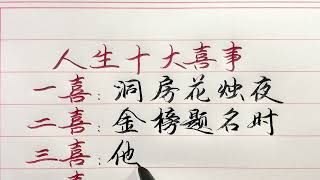 人生十大喜事
一喜:洞房花烛夜
二喜:金榜题名时
三喜:他